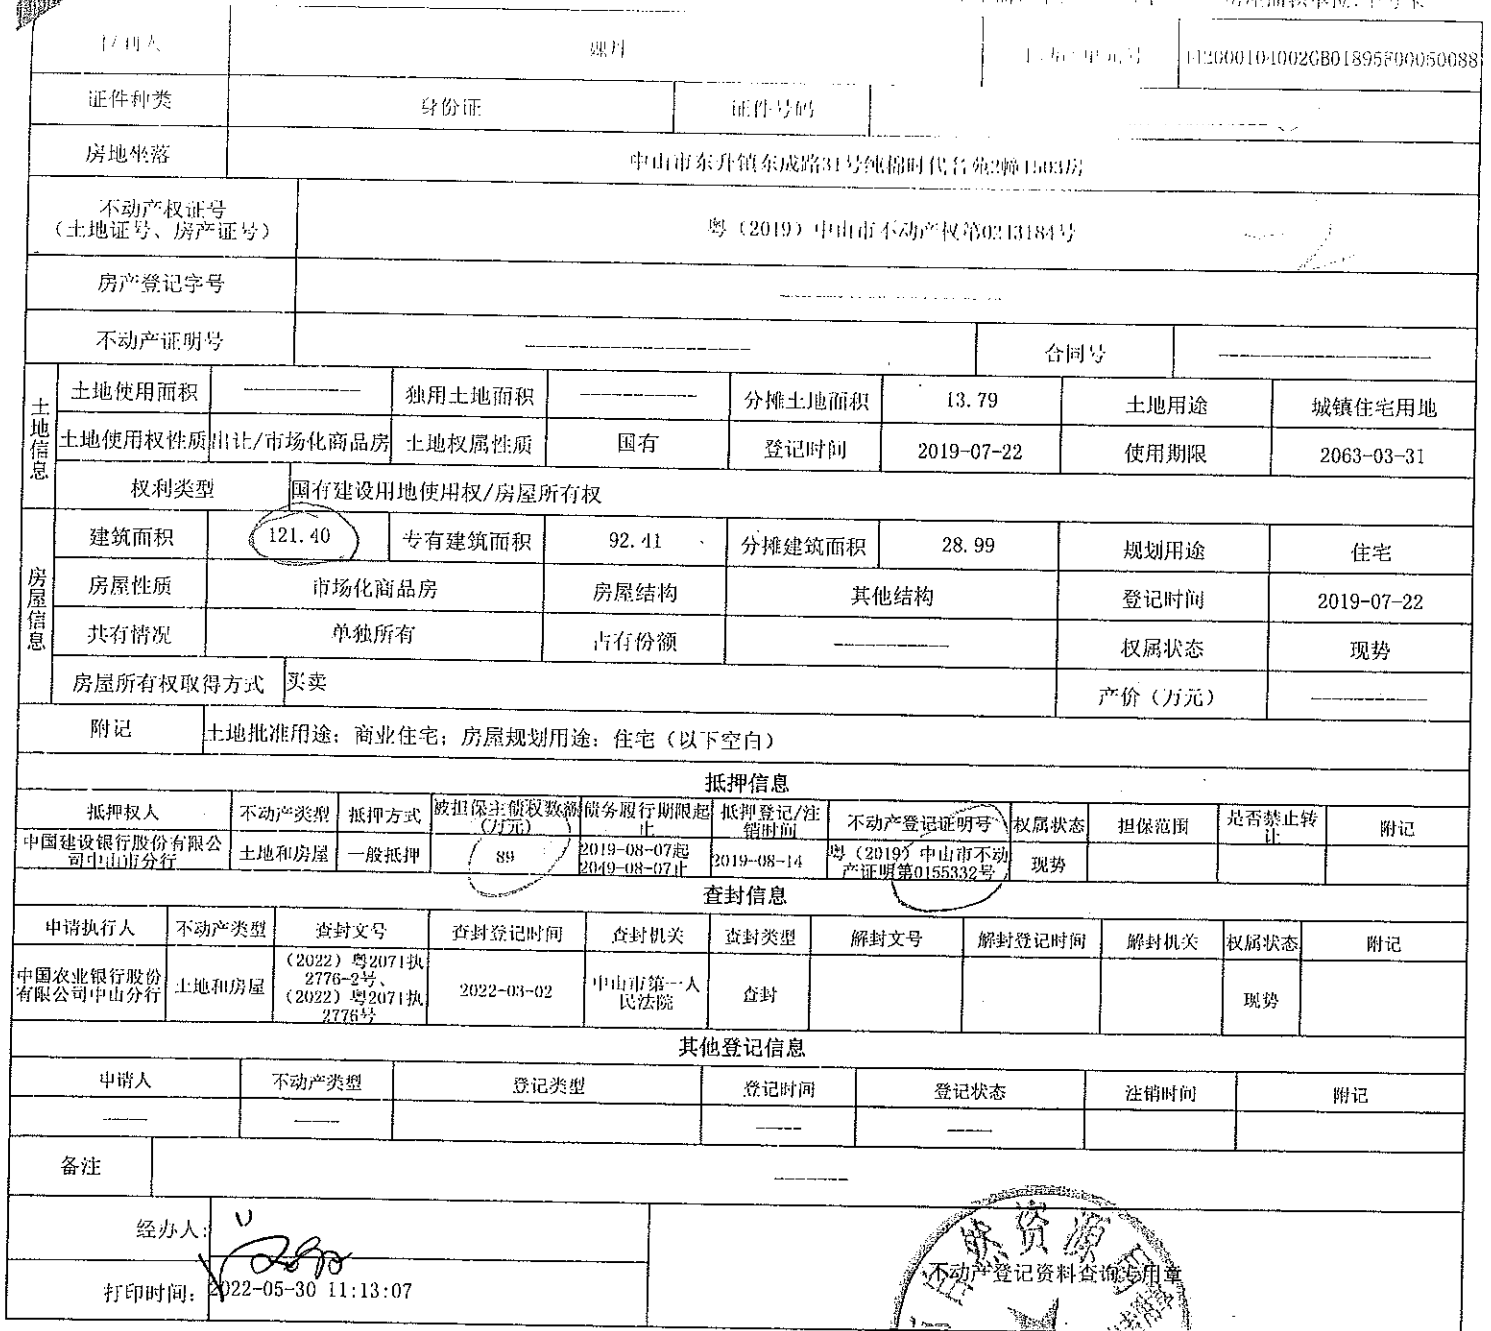 证件种类 身份证 证件号码
房地坐落 中山市东升镇东成路31号纯棉时代名苑2幢1503房
不动产权证号
（土地证号、房产证号） 粤（2019）中山市不动产权第0213184号
房产登记字号
不动产证明号 ---------------------- 合同号 ----------------------
土地信息
土地使用面积 ------------ 独用土地面积 ------------ 分摊土地面积 13.79 土地用途 城镇住宅用地
土地使用权性质 出让/市场化商品房 土地权属性质 国有 登记时间 2019-07-22 使用期限 2063-03-31
权利类型 国有建设用地使用权/房屋所有权
房屋信息
建筑面积 121.40 专有建筑面积 92.41 分摊建筑面积 28.99 规划用途 住宅
房屋性质 市场化商品房 房屋结构 其他结构 登记时间 2019-07-22
共有情况 单独所有 占有份额 ------------ 权属状态 现势
房屋所有权取得方式 买卖 产价（万元） ------------
附记 土地批准用途：商业住宅；房屋规划用途：住宅（以下空白）
抵押信息
抵押权人 不动产类型 抵押方式 被担保主债权数额（万元） 债务履行期限起止 抵押登记/注销时间 不动产登记证明号 权属状态 担保范围 是否禁止转让 附记
中国建设银行股份有限公司中山市分行 土地和房屋 一般抵押 89 2019-08-07起 2049-08-07止 2019-08-14 粤（2019）中山市不动产证明第0155332号 现势
查封信息
申请执行人 不动产类型 查封文号 查封登记时间 查封机关 查封类型 解封文号 解封登记时间 解封机关 权属状态 附记
中国农业银行股份有限公司中山分行 土地和房屋 （2022）粤2071执2776-2号、（2022）粤2071执2776号 2022-03-02 中山市第一人民法院 查封 现势
其他登记信息
申请人 不动产类型 登记类型 登记时间 登记状态 注销时间 附记
----- ----- ----- -----
备注 --------
经办人：
打印时间：2022-05-30 11:13:07
然资源
不动产登记资料查询专用章